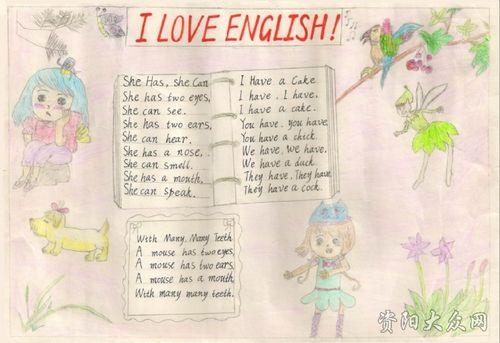 I LOVE ENGLISH!
She Has, she Can
She has two eyes,
She can see.
She has two ears,
She can hear.
She has a nose,
She can smell.
She has a mouth,
She can speak.
I Have a Cake
I have, I have,
I have a cake.
You have, you have,
You have a chick.
We have, we have,
We have a duck
They have, They have
They have a cock.
With Many, Many Teeth
A mouse has two eyes,
A mouse has two ears,
A mouse has a mouth,
With many many teeth.
资阳大众网